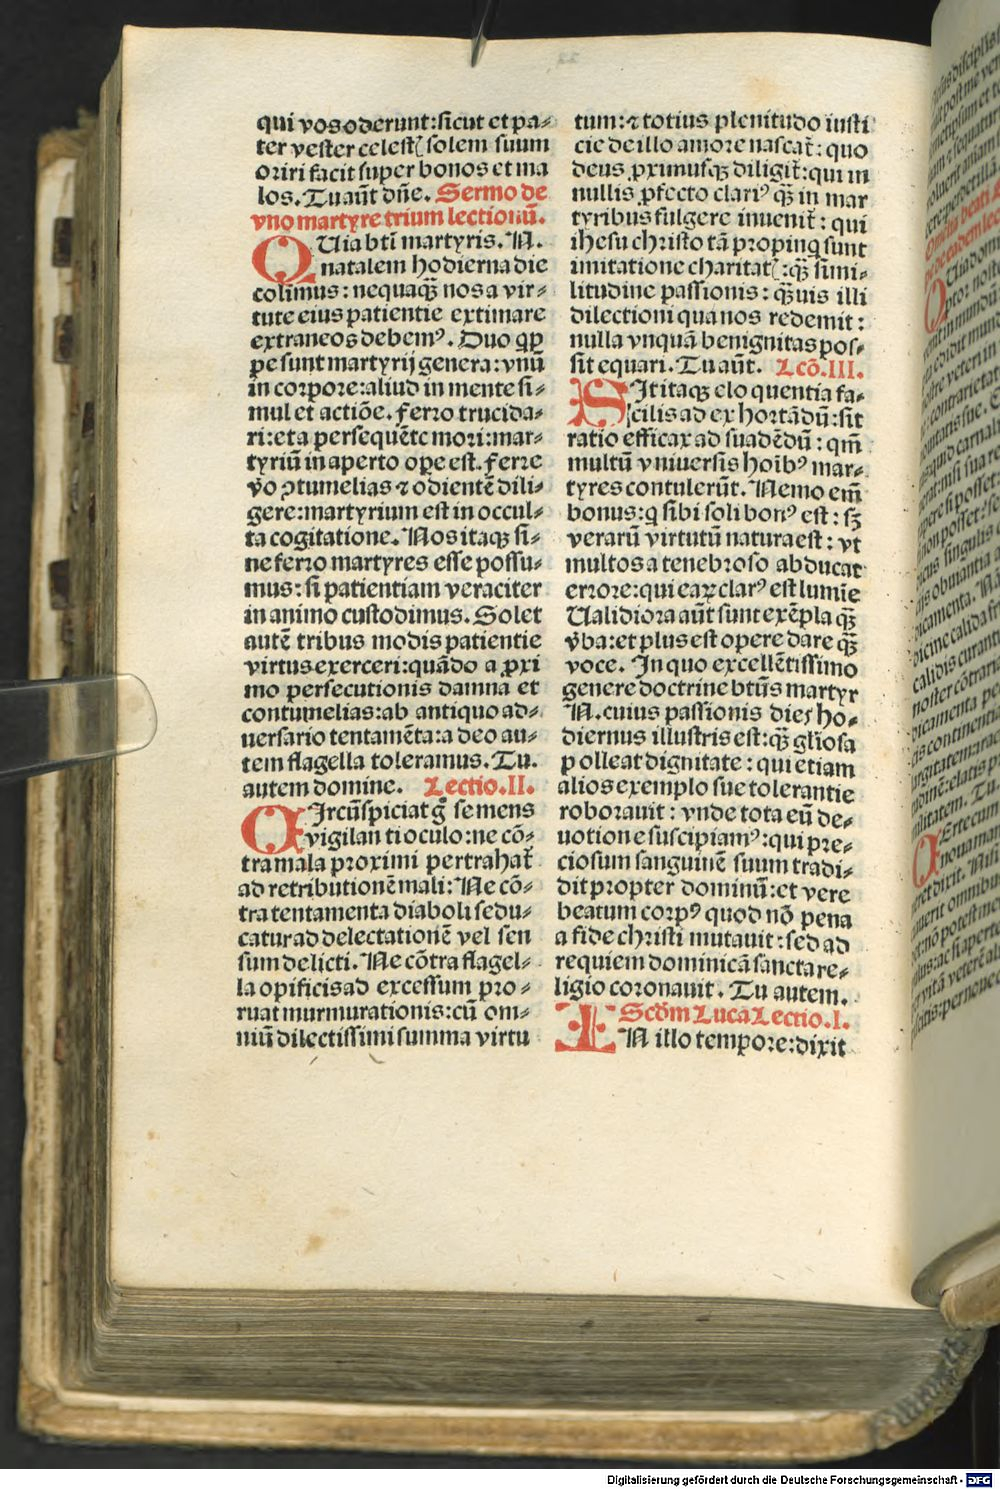 qui vos oderunt: sicut et pa-
ter vester celestꝭ solem suum
oriri facit super bonos et ma
los. Tu aūt dn̄e. Sermo de
vno martyre trium lectionū.
QUia bti̅ martyris. N.
natalem hodierna die
colimus: nequaqꝫ nos a vir-
tute eius patientie extimare
extraneos debemꝰ. Duo qꝑ
pe sunt martyrij genera: vnū
in corpore: aliud in mente si-
mul et actiōe. ferro trucida-
ri: et a persequētc mori: mar-
tyriū in aperto oꝑe est. ferre
v̊o ꝯtumelias ⁊ odientē dili-
gere: martyrium est in occul-
ta cogitatione. Nos itaqꝫ si-
ne ferro martyres esse possu-
mus: si patientiam veraciter
in animo custodimus. Solet
autē tribus modis patientie
virtus exerceri: quādo a ꝓxi
mo persecutionis damna et
contumelias: ab antiquo ad-
uersario tentamēta: a deo au-
tem flagella toleramus. Tu.
autem domine. Lectio. II.
CIrcūspiciat g̊ se mens
vigilanti oculo: ne cō-
tra mala proximi pertrahat̄
ad retributionē mali: Ne cō-
tra tentamenta diaboli sedu-
catur ad delectationē vel sen
sum delicti. Ne cōtra flagel-
la opificis ad excessum pro-
ruat murmurationis: cū om-
niū dilectissimi summa virtu
tum: ⁊ totius plenitudo iusti
cie de illo amore nascat̄: quo
deus ꝓximusqꝫ diligit̄: qui in
nullis ꝓfecto clariꝰ qꝫ in mar
tyribus fulgere inuenit̄: qui
ihesu christo tā propinq̇ sunt
imitatione charitatꝭ: qꝫ simi-
litudine passionis: qꝫuis illi
dilectioni qua nos redemit:
nulla vnquā benignitas pos-
sit equari. Tu aūt. Lcō. III.
SIt itaqꝫ eloquentia fa-
cilis ad exhortādū: sit
ratio efficax ad suadēdū: qm̄
multū vniuersis hoībꝰ mar-
tyres contulerūt. Nemo em̄
bonus: q̇ sibi soli bonꝰ est: sꝫ
verarū virtutū natura est: vt
multos a tenebroso abducat
errore: qui eaꝝ clarꝰ est lumīe
Ualidiora aūt sunt exēpla qꝫ
v̊ba: et plus est opere dare qꝫ
voce. In quo excellētissimo
genere doctrine btūs martyr
N. cuius passionis dies ho-
diernus illustris est: qꝫ gliosa
polleat dignitate: qui etiam
alios exemplo sue tolerantie
roborauit: vnde tota eū de-
uotione suscipiamꝰ: qui pre-
ciosum sanguinē suum tradi-
dit propter dominū: et vere
beatum corpꝰ quod nō pena
a fide christi mutauit: sed ad
requiem dominicā sancta re-
ligio coronauit. Tu autem.
Scd̄m Luca Lectio. I.
IN illo tempore: dixit
Digitalisierung gefördert durch die Deutsche Forschungsgemeinschaft - DFG